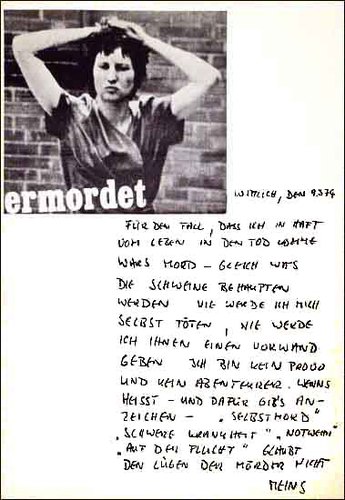 ermordet
WITTLICH, DEN 9.3.74
FÜR DEN FALL, DASS ICH IN HAFT
VOM LEBEN IN DEN TOD KOMME
WARS MORD – GLEICH WAS
DIE SCHWEINE BEHAUPTEN
WERDEN NIE WERDE ICH MICH
SELBST TÖTEN, NIE WERDE
ICH IHNEN EINEN VORWAND
GEBEN ICH BIN KEIN PROVO
UND KEIN ABENTEURER. WENNS
HEISST – UND DAFÜR GIBS AN-
ZEICHEN – „SELBSTMORD"
„SCHWERE KRANKHEIT" „NOTWEHR"
„AUF DER FLUCHT" GLAUBT
DEN LÜGEN DER MÖRDER NICHT
MEINS